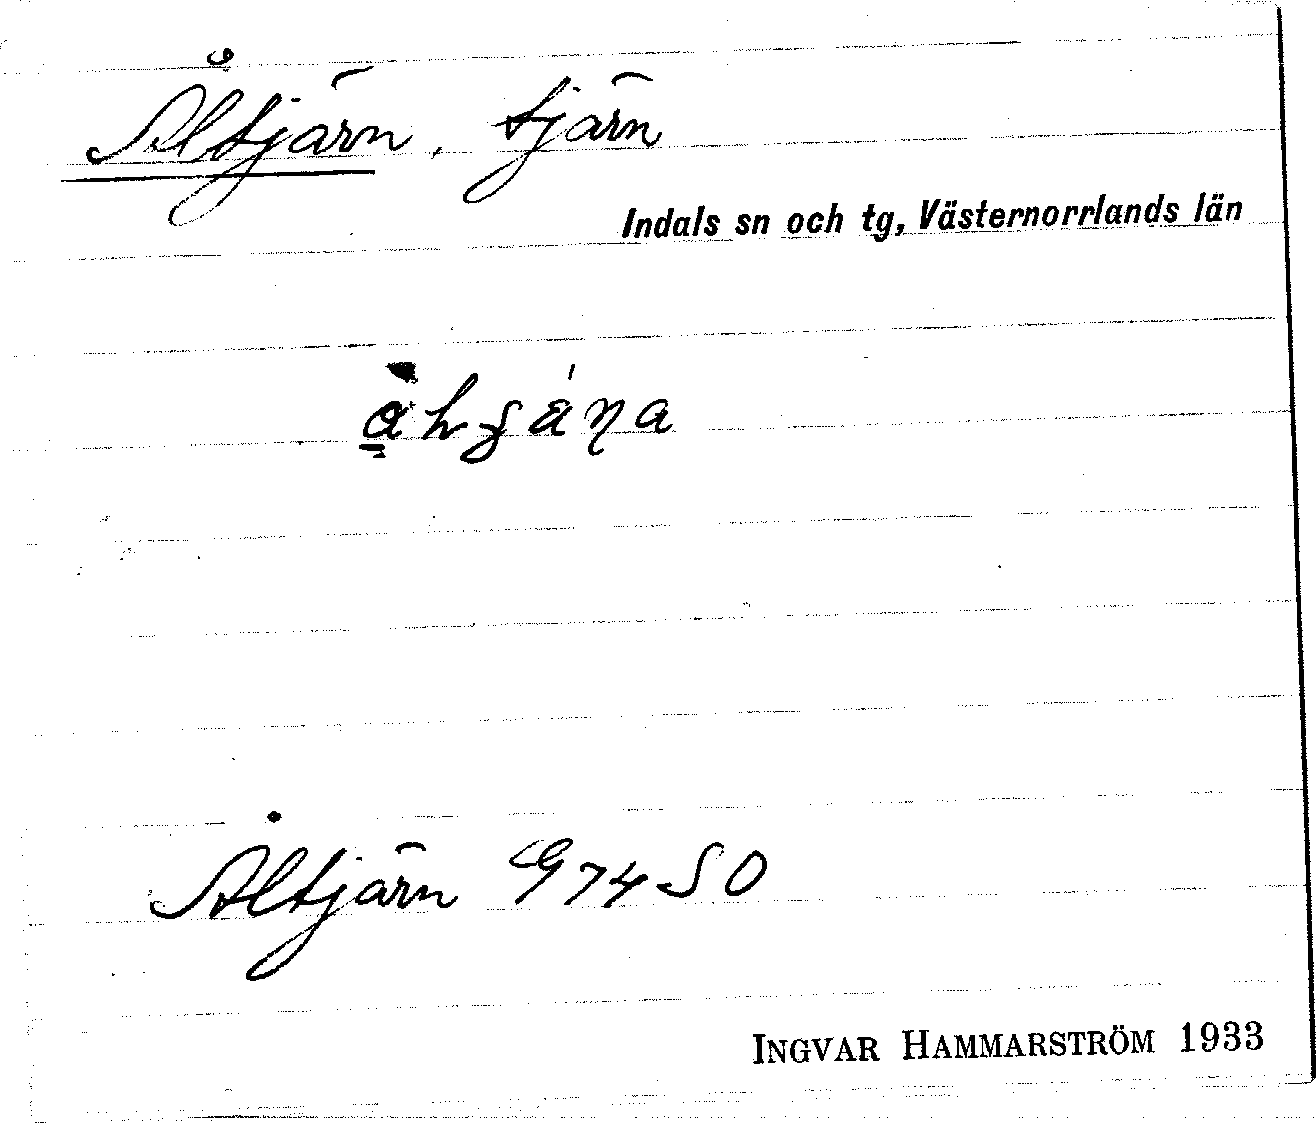 Åltjärn, tjärn
Indals sn och tg, Västernorrlands län
Åltjärn G74SO
INGVAR HAMMARSTRÖM 1933